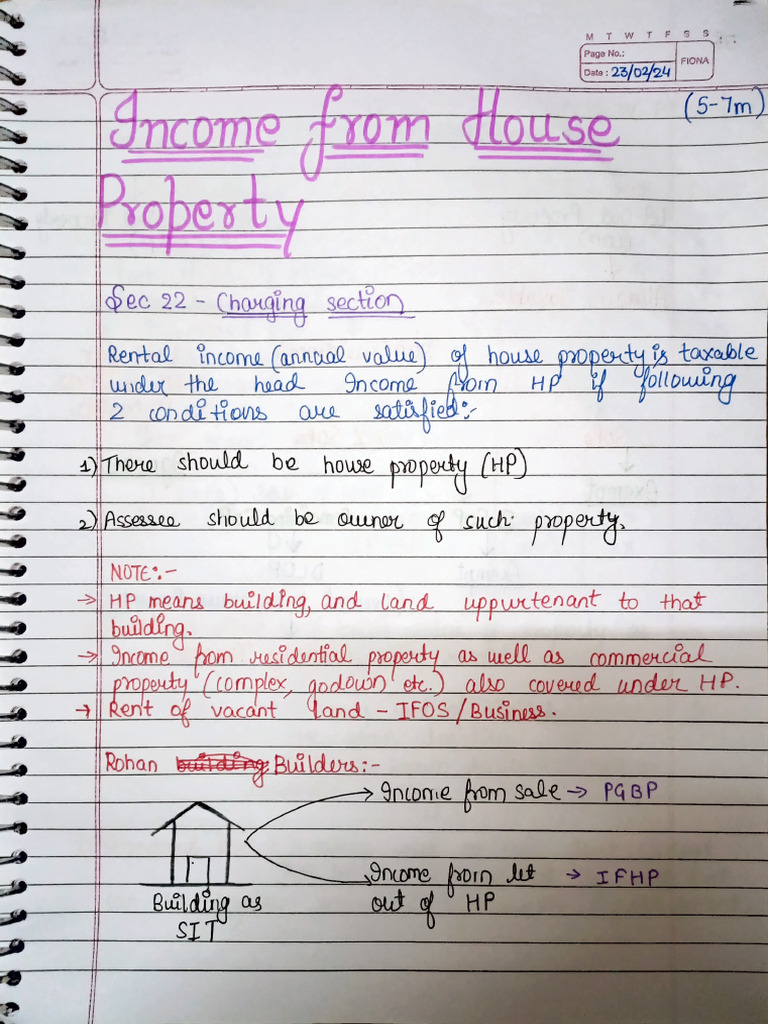 M T W T F S S
Page No.:
Date: 23/02/24
FIONA
(5-7m)
Income from House
Property
Sec 22 - Charging section
Rental income (annual value) of house property is taxable
under the head Income from HP if following
2 conditions are satisfied:-
1) There should be house property (HP)
2) Assessee should be owner of such property.
NOTE:-
→ HP means building, and land uppurtenant to that
building.
→ Income from residential property as well as commercial
property (complex, godown etc.) also covered under HP.
→ Rent of vacant land - IFOS / Business.
Rohan building Builders:-
Income from sale → PGBP
Income from let → IFHP
out of HP
Building as
SIT